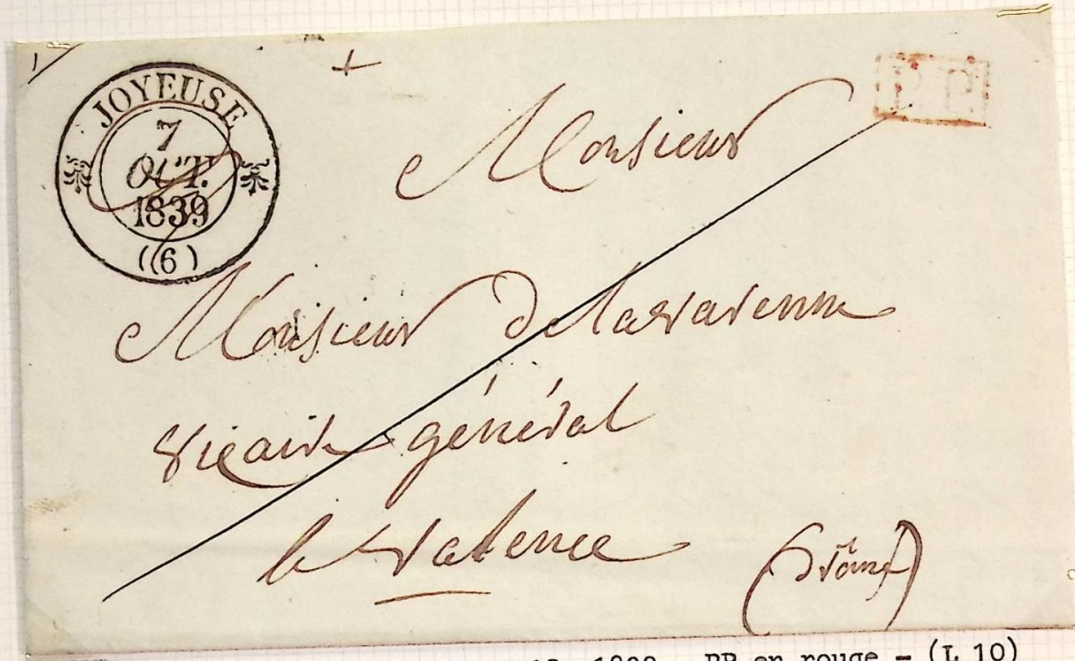 JOYEUSE
7
OCT.
1839
(6)
P.P.
Monsieur
Monsieur Delavarenne
vicaire général
à valence (Drôme)
PP en rouge - (L 10)